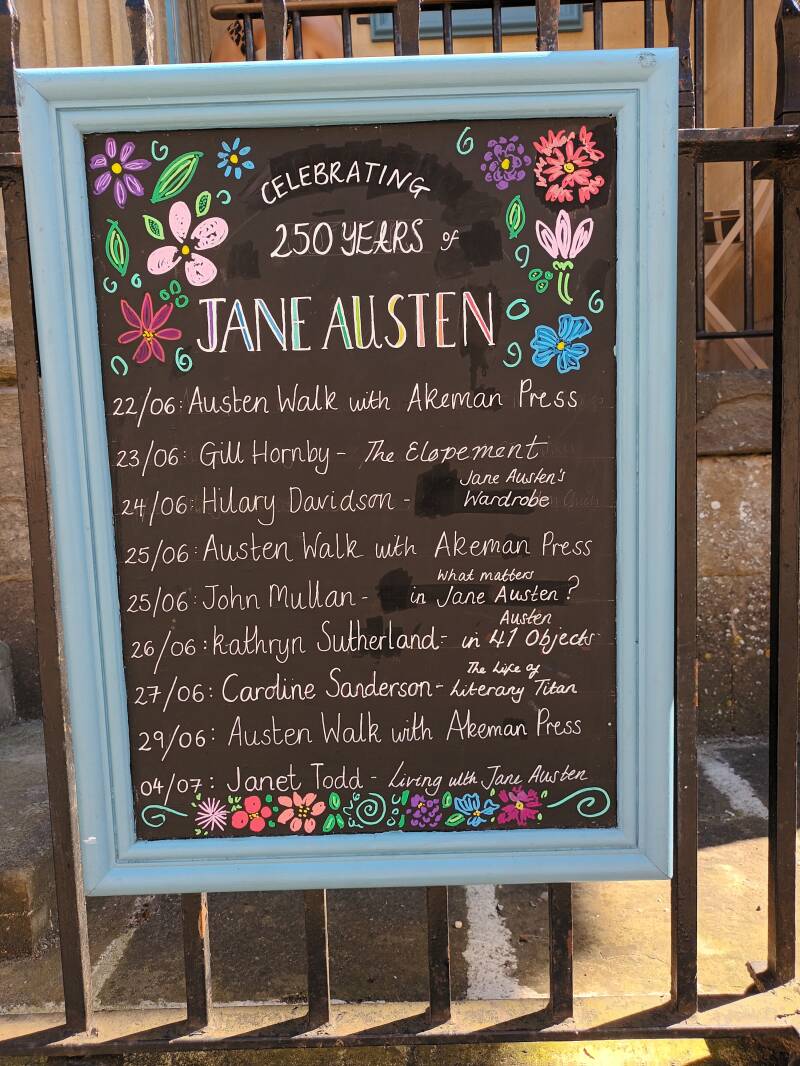 CELEBRATING
250 YEARS of
JANE AUSTEN
22/06: Austen Walk with Akeman Press
23/06: Gill Hornby - The Elopement
24/06: Hilary Davidson - Jane Austen's
Wardrobe
25/06: Austen Walk with Akeman Press
25/06: John Mullan - What matters
in Jane Austen?
26/06: Kathryn Sutherland - Austen
in 41 Objects
27/06: Caroline Sanderson - The Life of
Literary Titan
29/06: Austen Walk with Akeman Press
04/07: Janet Todd - Living with Jane Austen